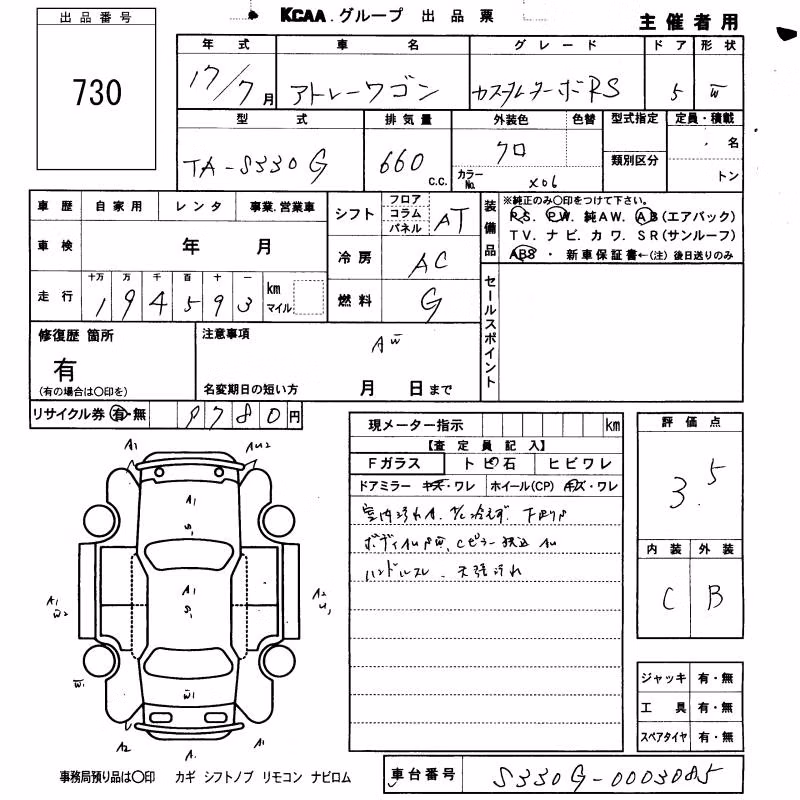 出品番号
730
KCAA.グループ 出品票
主催者用
年式 車名 グレード ドア 形状
17/7月 アトレーワゴン カスタムターボRS 5 W
型式 排気量 外装色 色替 型式指定 定員・積載
類別区分
TA-S330G 660 c.c. クロ 名
カラーNo. X06 トン
車歴 自家用 レンタ 事業.営業車
車検 年 月
走行 十万 万 千 百 十 一
194593 km マイル
シフト フロア コラム パネル AT
冷房 AC
燃料 G
装備品
※純正のみ〇印をつけて下さい。
PS. PW. 純AW. AB(エアバック)
TV. ナビ. カワ. SR(サンルーフ)
ABS ・ 新車保証書←(注) 後日送りのみ
セールスポイント
修復歴 箇所
有
(有の場合は〇印を)
注意事項
AW
名変期日の短い方 月 日まで
リサイクル券 有・無 9780円
現メーター指示 km
【査定員記入】
Fガラス トビ石 ヒビワレ
ドアミラー キズ・ワレ ホイール(CP) キズ・ワレ
室内汚れA. A/C冷えず. 下回り
ボディAUPW, Cピラー 押込 AU
ハンドルスレ. 天張汚れ
評価点
3.5
内装 外装
C B
ジャッキ 有・無
工具 有・無
スペアタイヤ 有・無
A1 AU2
A1
S1
A1
W2
A1
S1
A2
U1
W1
W1
A2 A1
A1
事務局預り品は〇印 カギ シフトノブ リモコン ナビロム
車台番号 S330G-0003085